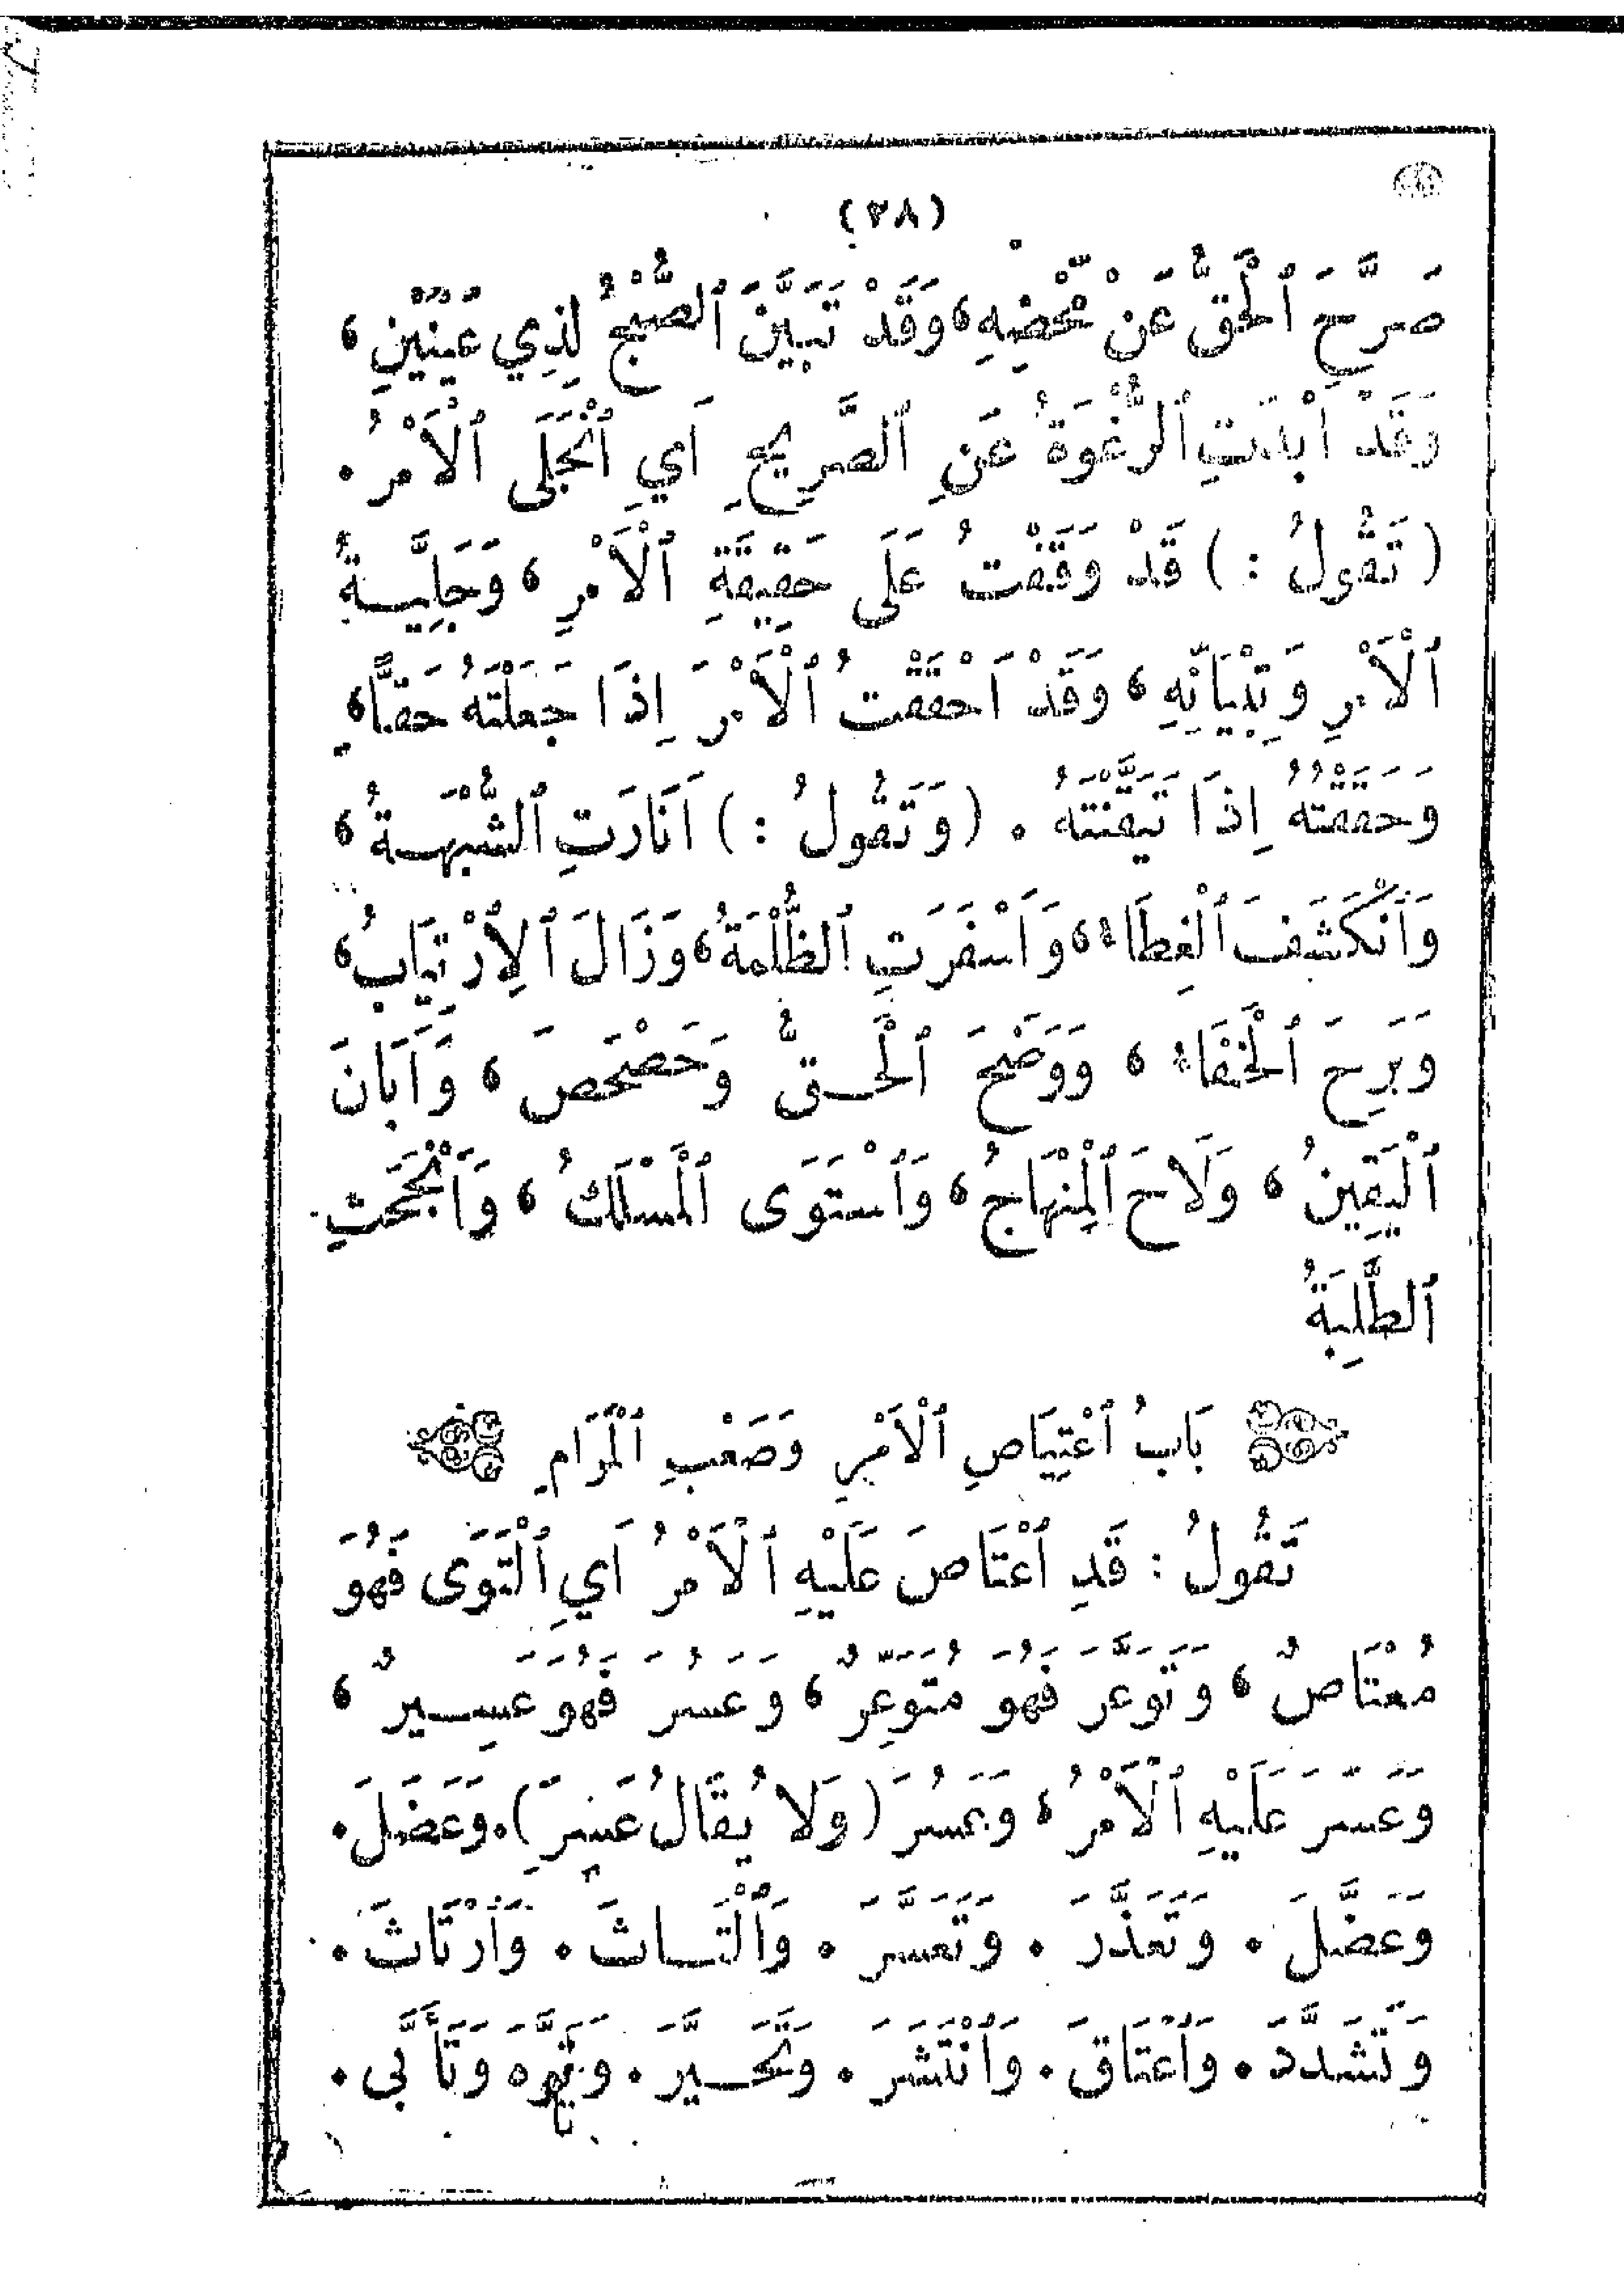 (٢٨)
صَرَّحَ ٱلْحَقُّ عَنْ مَحْضِهِ، وَقَدْ تَبَيَّنَ ٱلصُّبْحُ لِذِي عَيْنَيْنِ،
وَقَدْ أَبْدَتِ ٱلرُّغْوَةُ عَنِ ٱلصَّرِيحِ أَيِ ٱنْجَلَى ٱلْأَمْرُ.
(تَقُولُ:) قَدْ وَقَفْتُ عَلَى حَقِيقَةِ ٱلْأَمْرِ، وَجَلِيَّةِ
ٱلْأَمْرِ وَتِبْيَانِهِ، وَقَدْ اَحْقَقْتُ ٱلْأَمْرَ اِذَا جَعَلْتَهُ حَقًّا،
وَحَقَقْتُهُ اِذَا تَيَقَّنْتَهُ. (وَتَقُولُ:) اَنَارَتِ ٱلشُّبْهَةُ،
وَٱنْكَشَفَ ٱلْغِطَاءُ، وَاَسْفَرَتِ ٱلظُّلْمَةُ، وَزَالَ ٱلِٱرْتِيَابُ،
وَبَرِحَ ٱلْخَفَاءُ، وَوَضَحَ ٱلْحَقُّ وَحَصْحَصَ، وَاَبَانَ
ٱلْيَقِينُ، وَلَاحَ ٱلْمِنْهَاجُ، وَٱسْتَوَى ٱلْمَسْلَكُ، وَاَنْجَحَتِ
ٱلطَّلِبَةُ
بَابُ ٱعْتِيَاصِ ٱلْأَمْرِ وَصَعْبِ ٱلْمَرَامِ
تَقُولُ: قَدِ ٱعْتَاصَ عَلَيْهِ ٱلْأَمْرُ اَيِ ٱلْتَوَى فَهُوَ
مُعْتَاصٌ، وَتَوَعَّرَ فَهُوَ مُتَوَعِّرٌ، وَعَسُرَ فَهُوَ عَسِيرٌ،
وَعَسَّرَ عَلَيْهِ ٱلْأَمْرُ، وَعَسُرَ (وَلَا يُقَالُ عَسِرَ). وَعَضَلَ.
وَعَضَّلَ. وَتَعَذَّرَ. وَتَعَسَّرَ. وَٱلْتَاثَ. وَٱرْتَاثَ.
وَتَشَدَّدَ. وَٱعْتَاقَ. وَٱنْتَشَرَ. وَتَحَيَّرَ. وَتَأَبَّى.